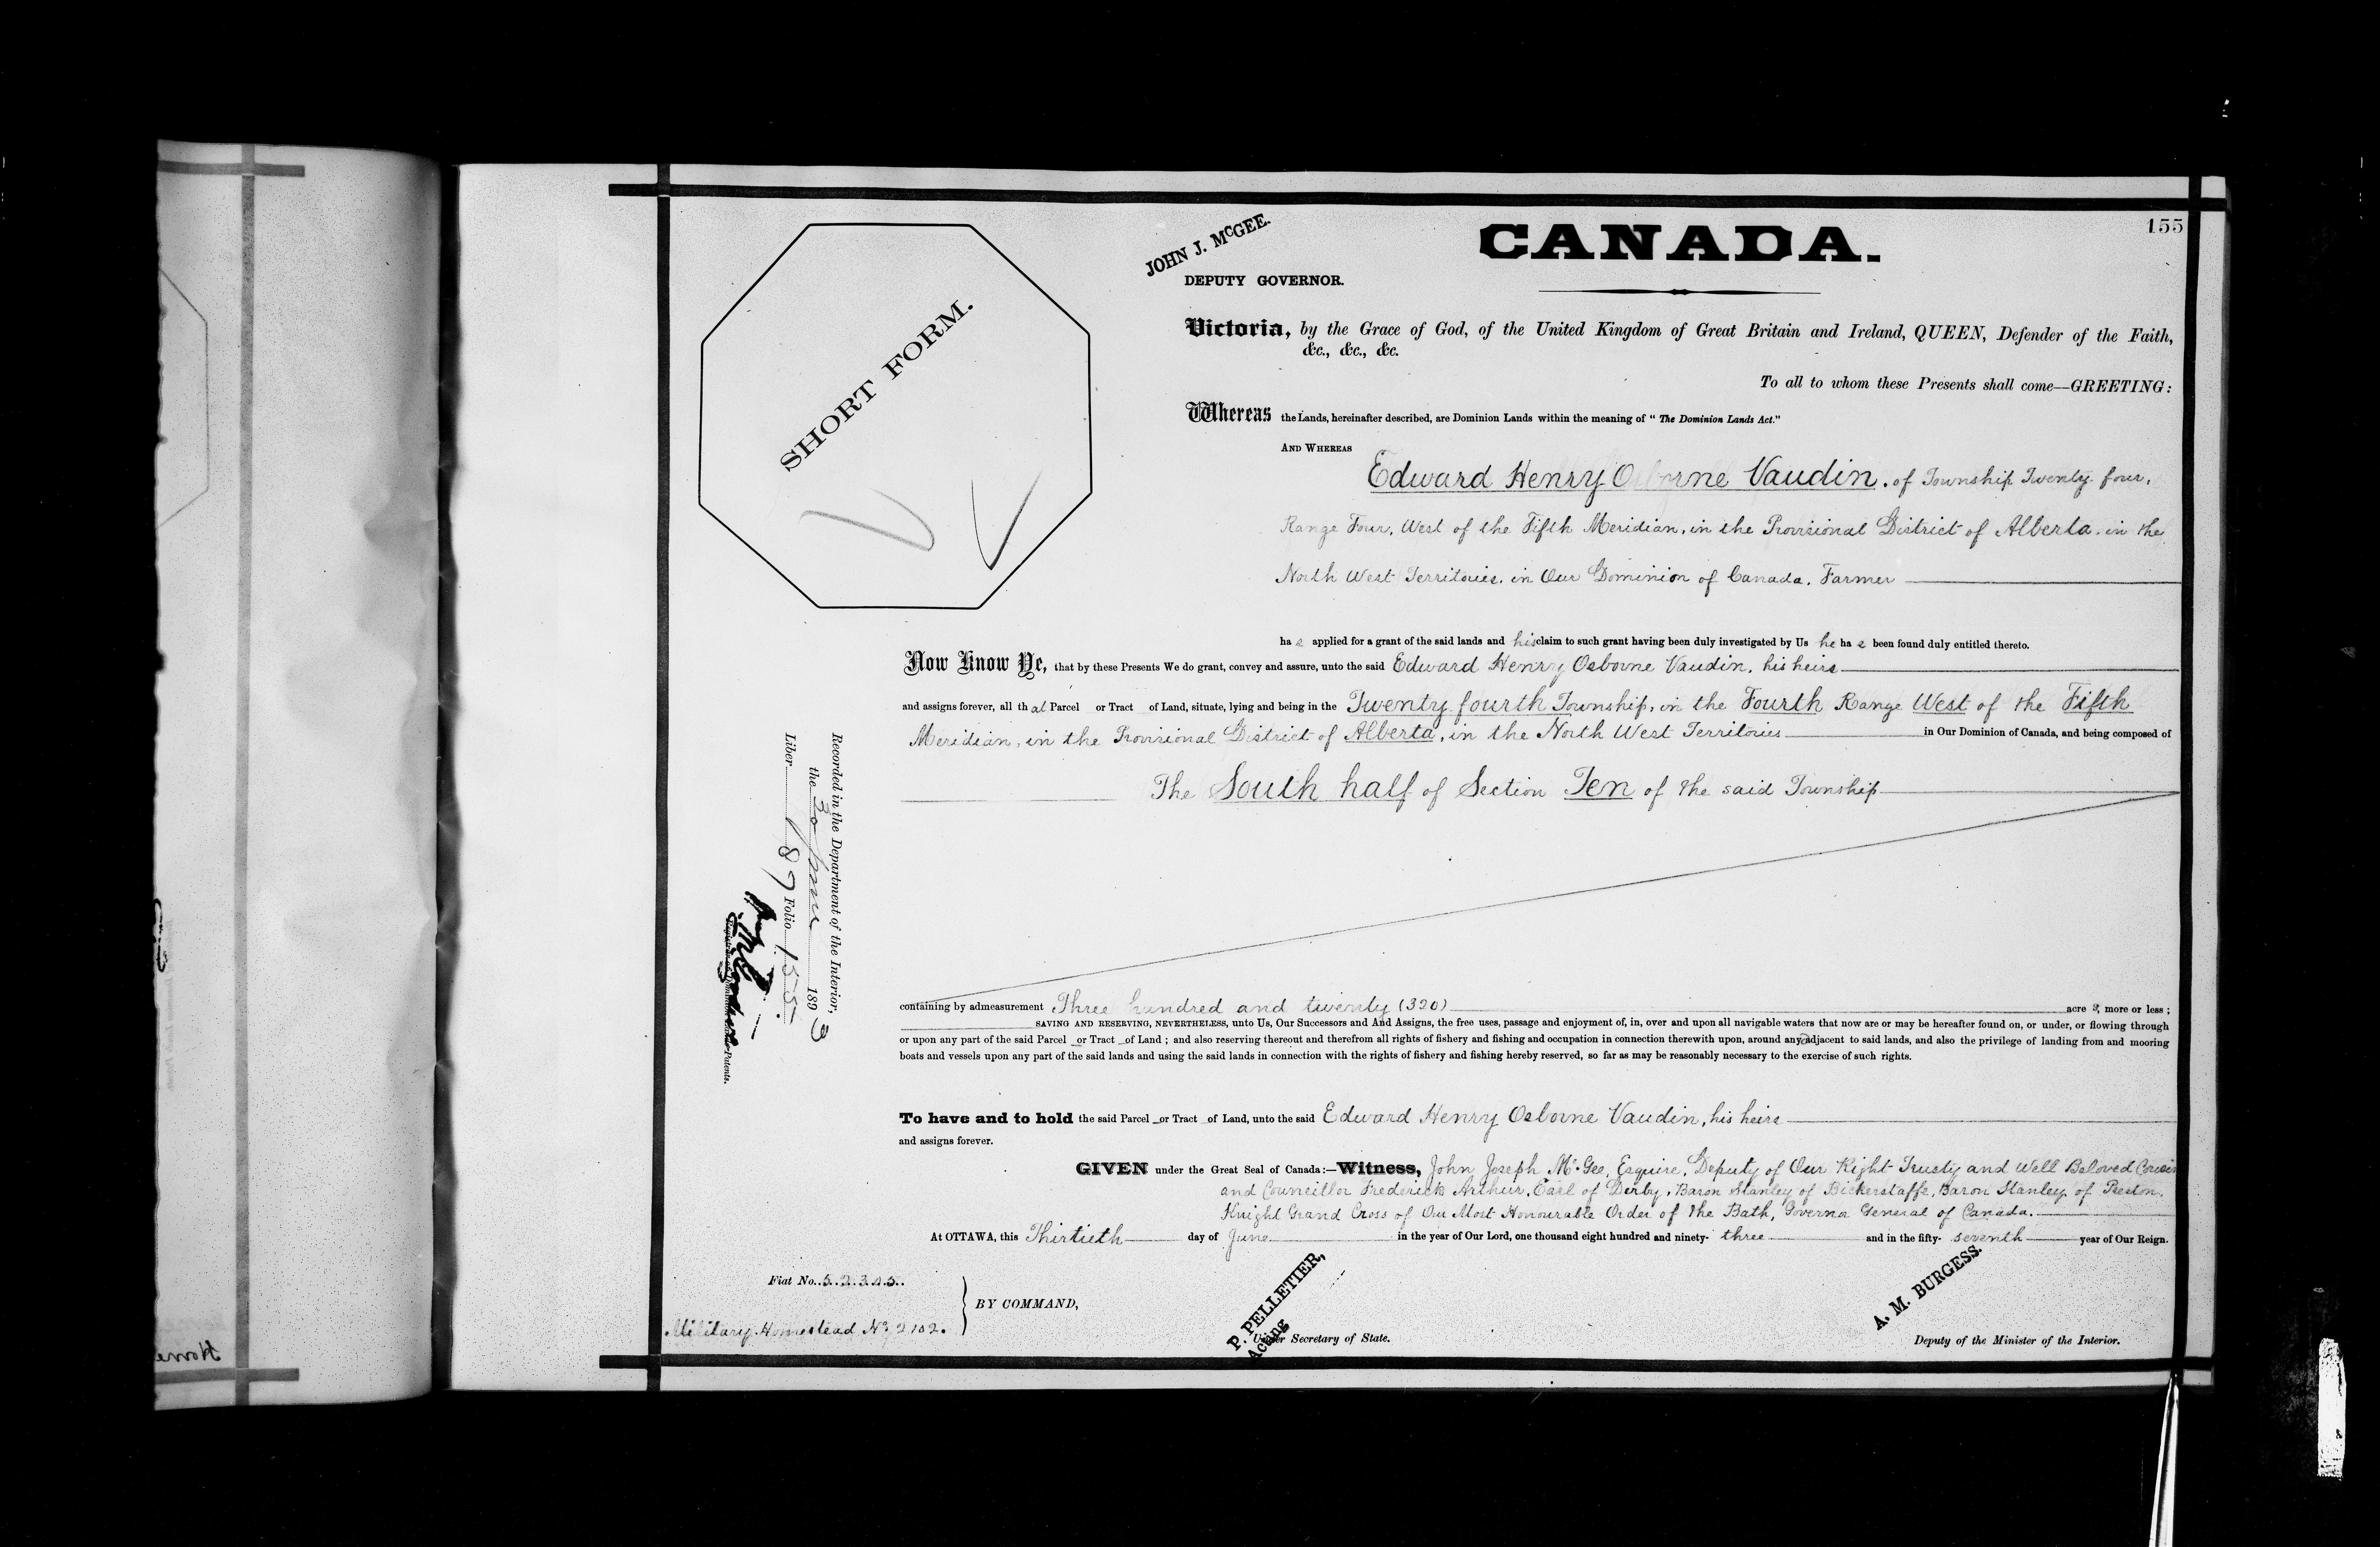 155
CANADA.
JOHN J. McGEE.
DEPUTY GOVERNOR.
SHORT FORM.
Victoria, by the Grace of God, of the United Kingdom of Great Britain and Ireland, QUEEN, Defender of the Faith,
&c., &c., &c.
To all to whom these Presents shall come—GREETING:
Whereas the Lands, hereinafter described, are Dominion Lands within the meaning of "The Dominion Lands Act."
AND WHEREAS
Edward Henry Osborne Vaudin, of Township Twenty four,
Range Four, West of the Fifth Meridian, in the Provisional District of Alberta, in the
North West Territories, in Our Dominion of Canada, Farmer
has applied for a grant of the said lands and his claim to such grant having been duly investigated by Us he has been found duly entitled thereto.
Now Know Ye, that by these Presents We do grant, convey and assure, unto the said Edward Henry Osborne Vaudin, his heirs
and assigns forever, all that Parcel or Tract of Land, situate, lying and being in the Twenty fourth Township, in the Fourth Range West of the Fifth
Meridian, in the Provisional District of Alberta, in the North West Territories in Our Dominion of Canada, and being composed of
The South half of Section Ten of the said Township
containing by admeasurement Three hundred and twenty (320) acres, more or less;
SAVING AND RESERVING, NEVERTHELESS, unto Us, Our Successors and And Assigns, the free uses, passage and enjoyment of, in, over and upon all navigable waters that now are or may be hereafter found on, or under, or flowing through
or upon any part of the said Parcel or Tract of Land; and also reserving thereout and therefrom all rights of fishery and fishing and occupation in connection therewith upon, around and adjacent to said lands, and also the privilege of landing from and mooring
boats and vessels upon any part of the said lands and using the said lands in connection with the rights of fishery and fishing hereby reserved, so far as may be reasonably necessary to the exercise of such rights.
To have and to hold the said Parcel or Tract of Land, unto the said Edward Henry Osborne Vaudin, his heirs
and assigns forever.
GIVEN under the Great Seal of Canada:—Witness, John Joseph McGee, Esquire, Deputy of Our Right Trusty and Well Beloved Cousin
and Councillor Frederick Arthur, Earl of Derby, Baron Stanley of Bickerstaffe, Baron Stanley of Preston,
Knight Grand Cross of Our Most Honourable Order of the Bath, Governor General of Canada.
At OTTAWA, this Thirtieth day of June in the year of Our Lord, one thousand eight hundred and ninety-three and in the fifty-seventh year of Our Reign.
Fiat No. 52305.
Military Homestead No. 2102.
BY COMMAND,
P. PELLETIER,
Acting
Under Secretary of State.
A. M. BURGESS.
Deputy of the Minister of the Interior.
Recorded in the Department of the Interior,
the 30 June 1893
Liber 187 Folio 155.